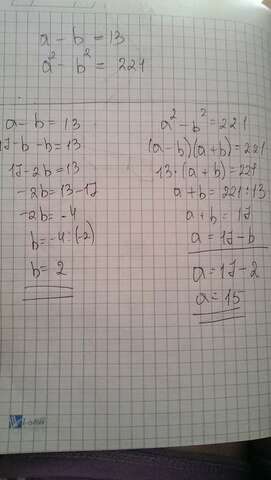 a - b = 13
a² - b² = 221
a - b = 13
17 - b - b = 13
17 - 2b = 13
-2b = 13 - 17
-2b = -4
b = -4 : (-2)
b = 2
a² - b² = 221
(a-b)(a+b) = 221
13 · (a+b) = 221
a + b = 221 : 13
a + b = 17
a = 17 - b
a = 17 - 2
a = 15